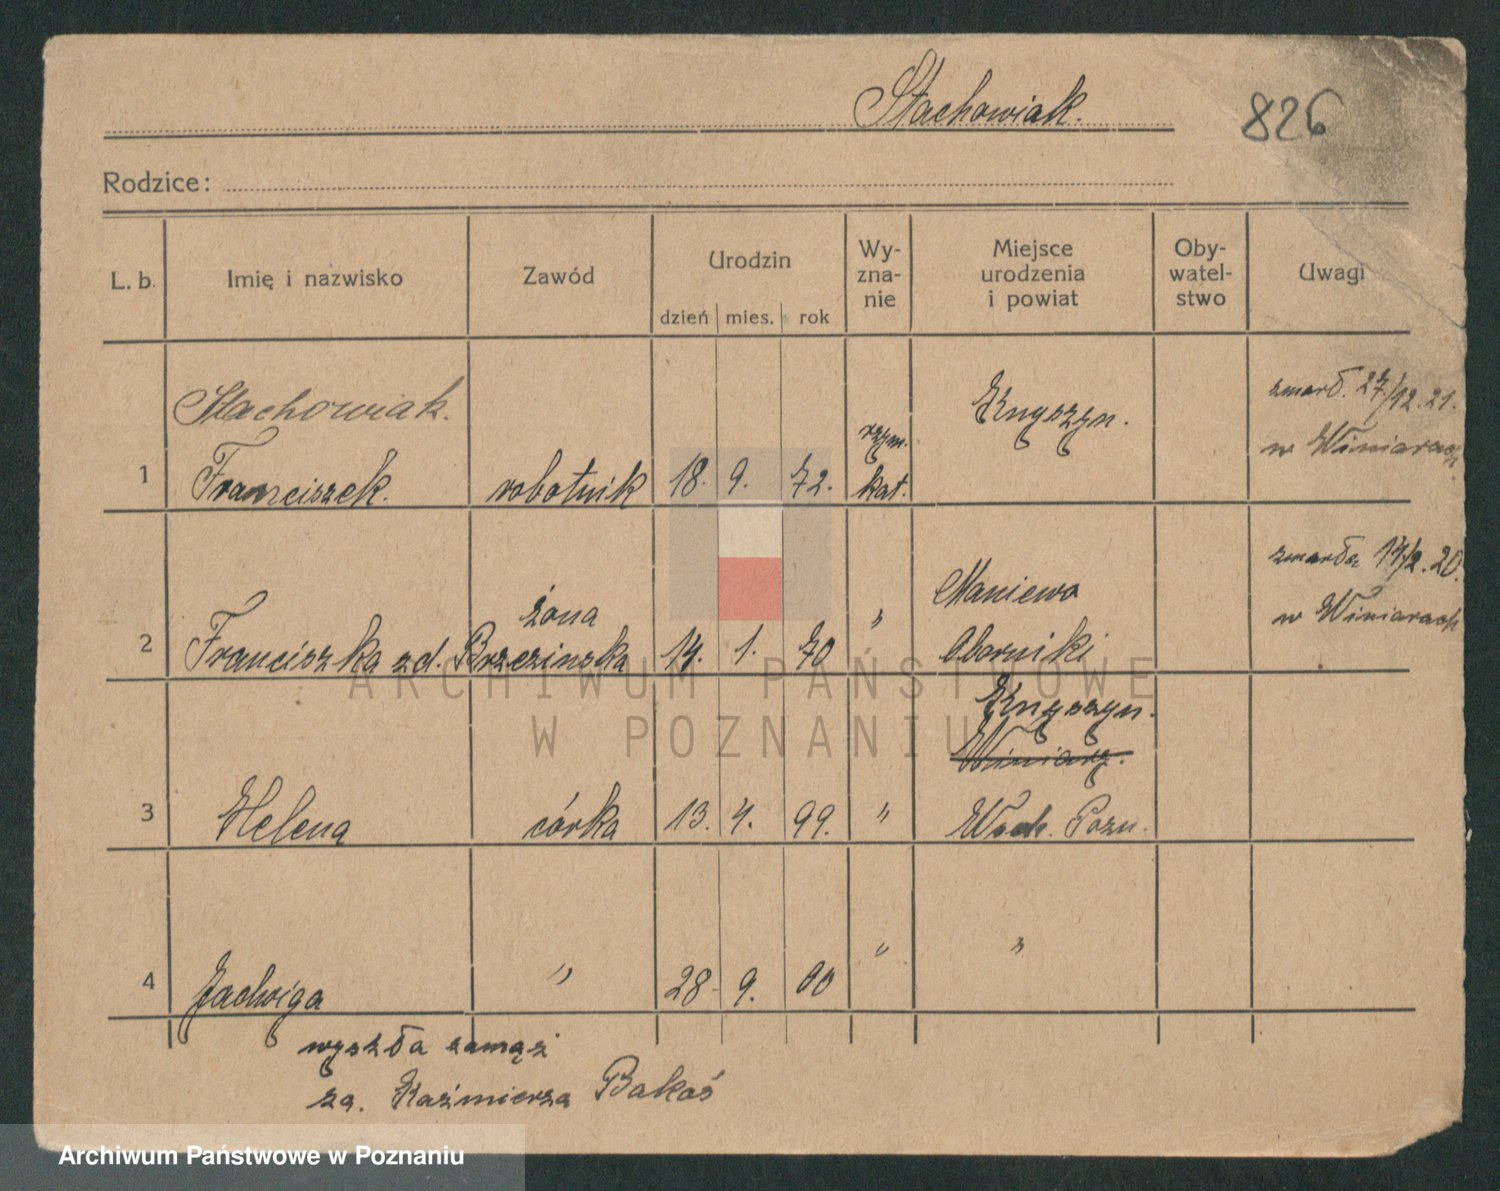 Stachowiak.
826
Rodzice:
L. b. Imię i nazwisko Zawód Urodzin dzień mies. rok Wy-zna-nie Miejsce urodzenia i powiat Oby-watel-stwo Uwagi
Stachowiak. zmarł 27/12.21.
1 Franciszek. robotnik 18. 9. 72. rzym. kat. w Winiarach
żona Maniewo zmarła 17/2.20.
2 Franciszka zd. Brzezinska 14. 1. 70 " Oborniki w Winiarach
Winiary.
3 Helena córka 13. 4. 99. " Wsch. Pozn.
4 Jadwiga " 28. 9. 00 " "
wyszła zamąż
za. Kaźmierza Bakoś
ARCHIWUM PAŃSTWOWE
W POZNANIU
Archiwum Państwowe w Poznaniu